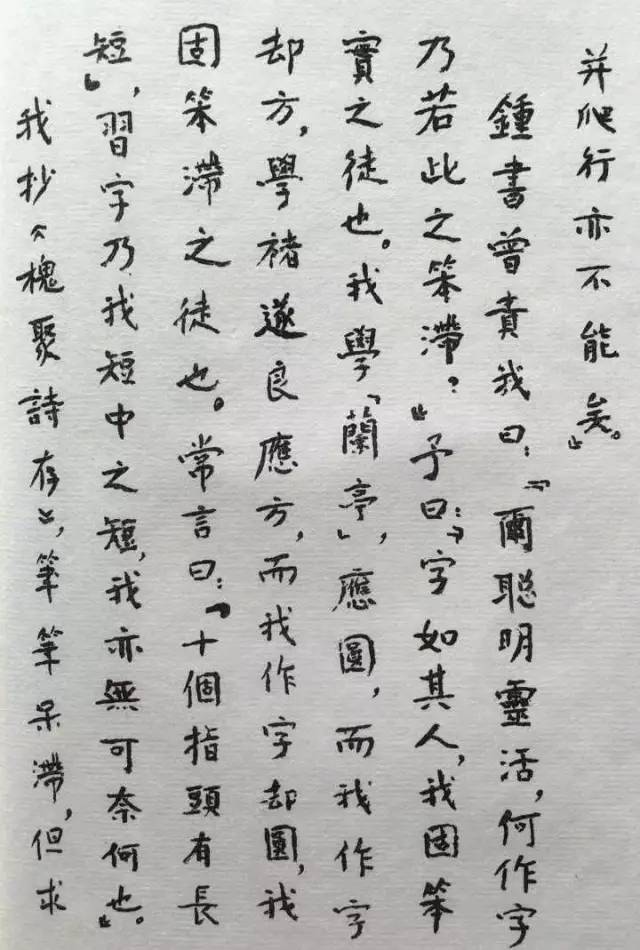 并爬行亦不能矣』。
鍾書曾責我曰：『爾聰明靈活，何作字
乃若此之笨滯？』予曰：『字如其人，我固笨
實之徒也。我學『蘭亭』，應圓，而我作字
却方，學褚遂良應方，而我作字却圓，我
固笨滯之徒也。常言曰：『十個指頭有長
短』，習字乃我短中之短，我亦無可奈何也』。
我抄《槐聚詩存》，筆筆呆滯，但求